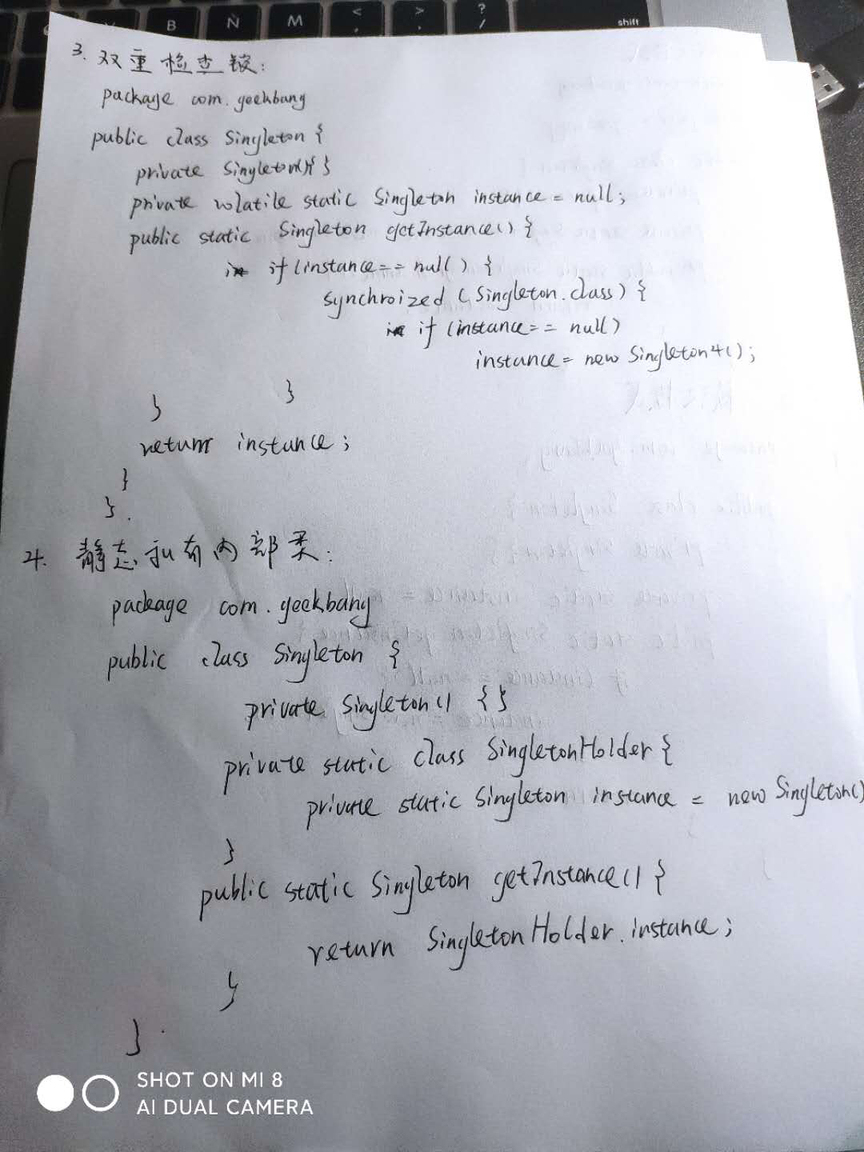 B N M < > ? / shift
3. 双重检查锁:
package com.geekbang
public class Singleton {
private Singleton(){ }
private volatile static Singleton instance = null;
public static Singleton getInstance() {
if (instance == null) {
synchroized (Singleton.class) {
if (instance == null)
instance = new Singleton4();
}
}
return instance;
}
}.
4. 静态私有内部类:
package com.geekbang
public class Singleton {
private Singleton() { }
private static class SingletonHolder {
private static Singleton instance = new Singleton()
}
public static Singleton getInstance() {
return SingletonHolder.instance;
}
}.
SHOT ON MI 8
AI DUAL CAMERA